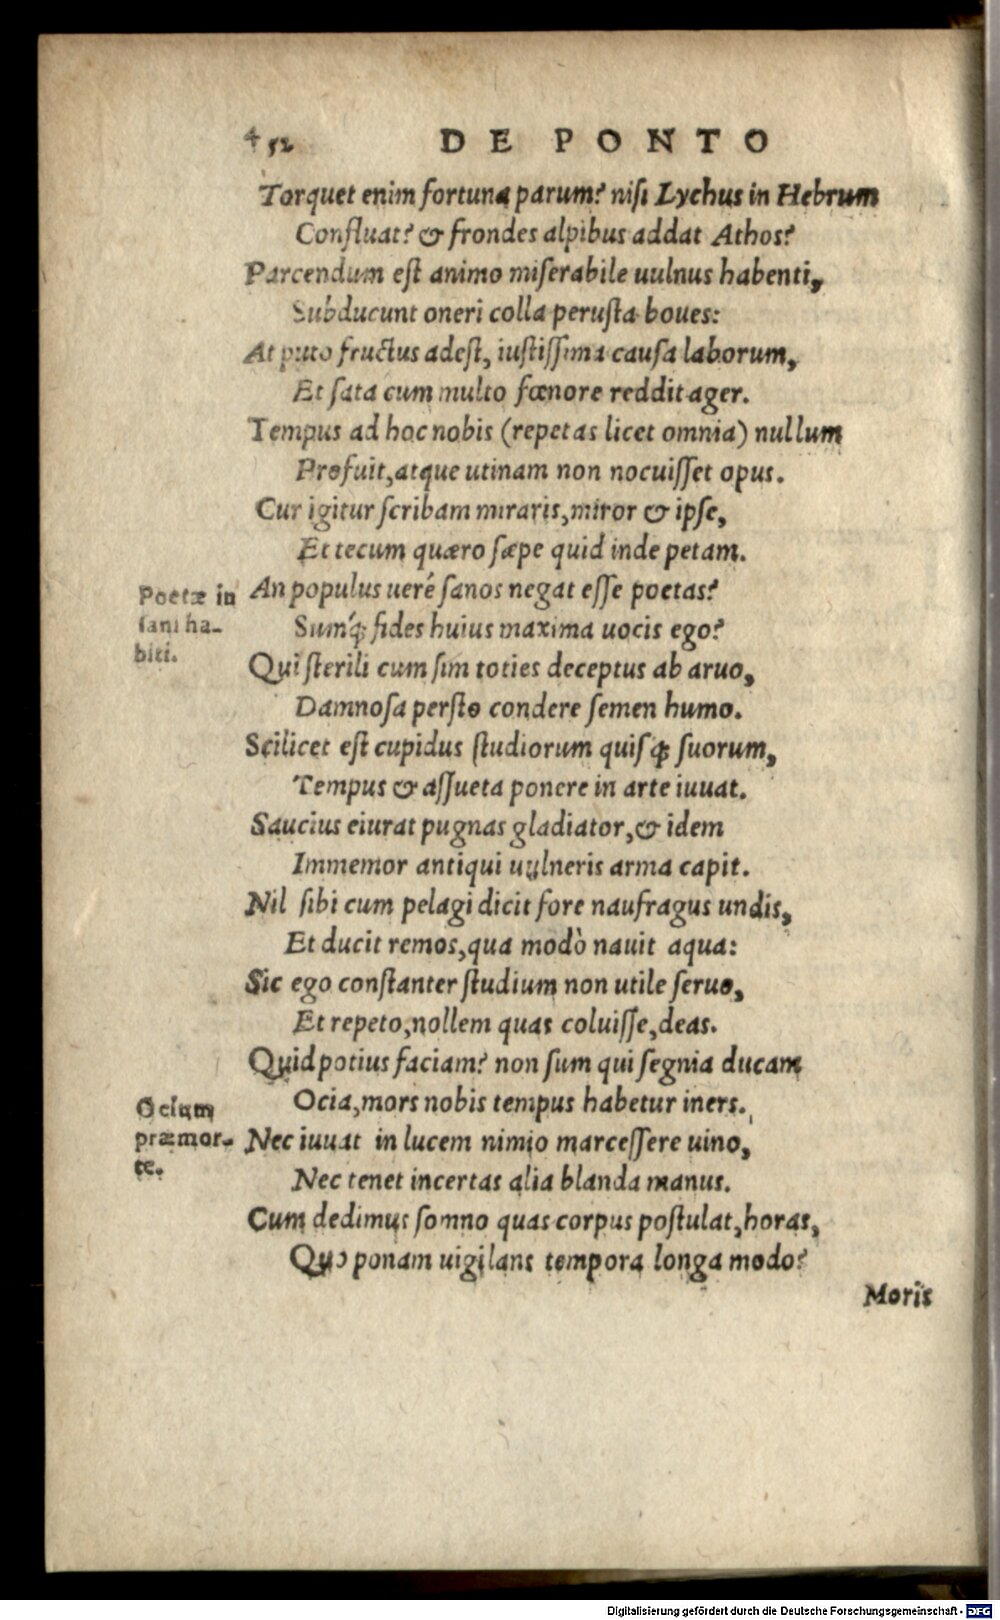 452 DE PONTO
Torquet enim fortuna parum? nisi Lychus in Hebrum
Confluat? & frondes alpibus addat Athos?
Parcendum est animo miserabile uulnus habenti,
Subducunt oneri colla perusta boues:
At puto fructus adest, iustissima causa laborum,
Et sata cum multo fœnore reddit ager.
Tempus ad hoc nobis (repetas licet omnia) nullum
Profuit, atque utinam non nocuisset opus.
Cur igitur scribam miraris, miror & ipse,
Et tecum quæro sæpe quid inde petam.
Poetæ in
sani ha-
biti.
An populus ueré sanos negat esse poetas?
Sumq́; fides huius maxima uocis ego?
Qui sterili cum sim toties deceptus ab aruo,
Damnosa persto condere semen humo.
Scilicet est cupidus studiorum quisq; suorum,
Tempus & assueta ponere in arte iuuat.
Saucius eiurat pugnas gladiator, & idem
Immemor antiqui uulneris arma capit.
Nil sibi cum pelagi dicit fore naufragus undis,
Et ducit remos, qua modò nauit aqua:
Sic ego constanter studium non utile seruo,
Et repeto, nollem quas coluisse, deas.
Quid potius faciam? non sum qui segnia ducam
Ocia, mors nobis tempus habetur iners.
Ocium
præmor-
te.
Nec iuuat in lucem nimio marcessere uino,
Nec tenet incertas alia blanda manus.
Cum dedimus somno quas corpus postulat, horas,
Quo ponam uigilans tempora longa modo?
Moris
Digitalisierung gefördert durch die Deutsche Forschungsgemeinschaft - DFG